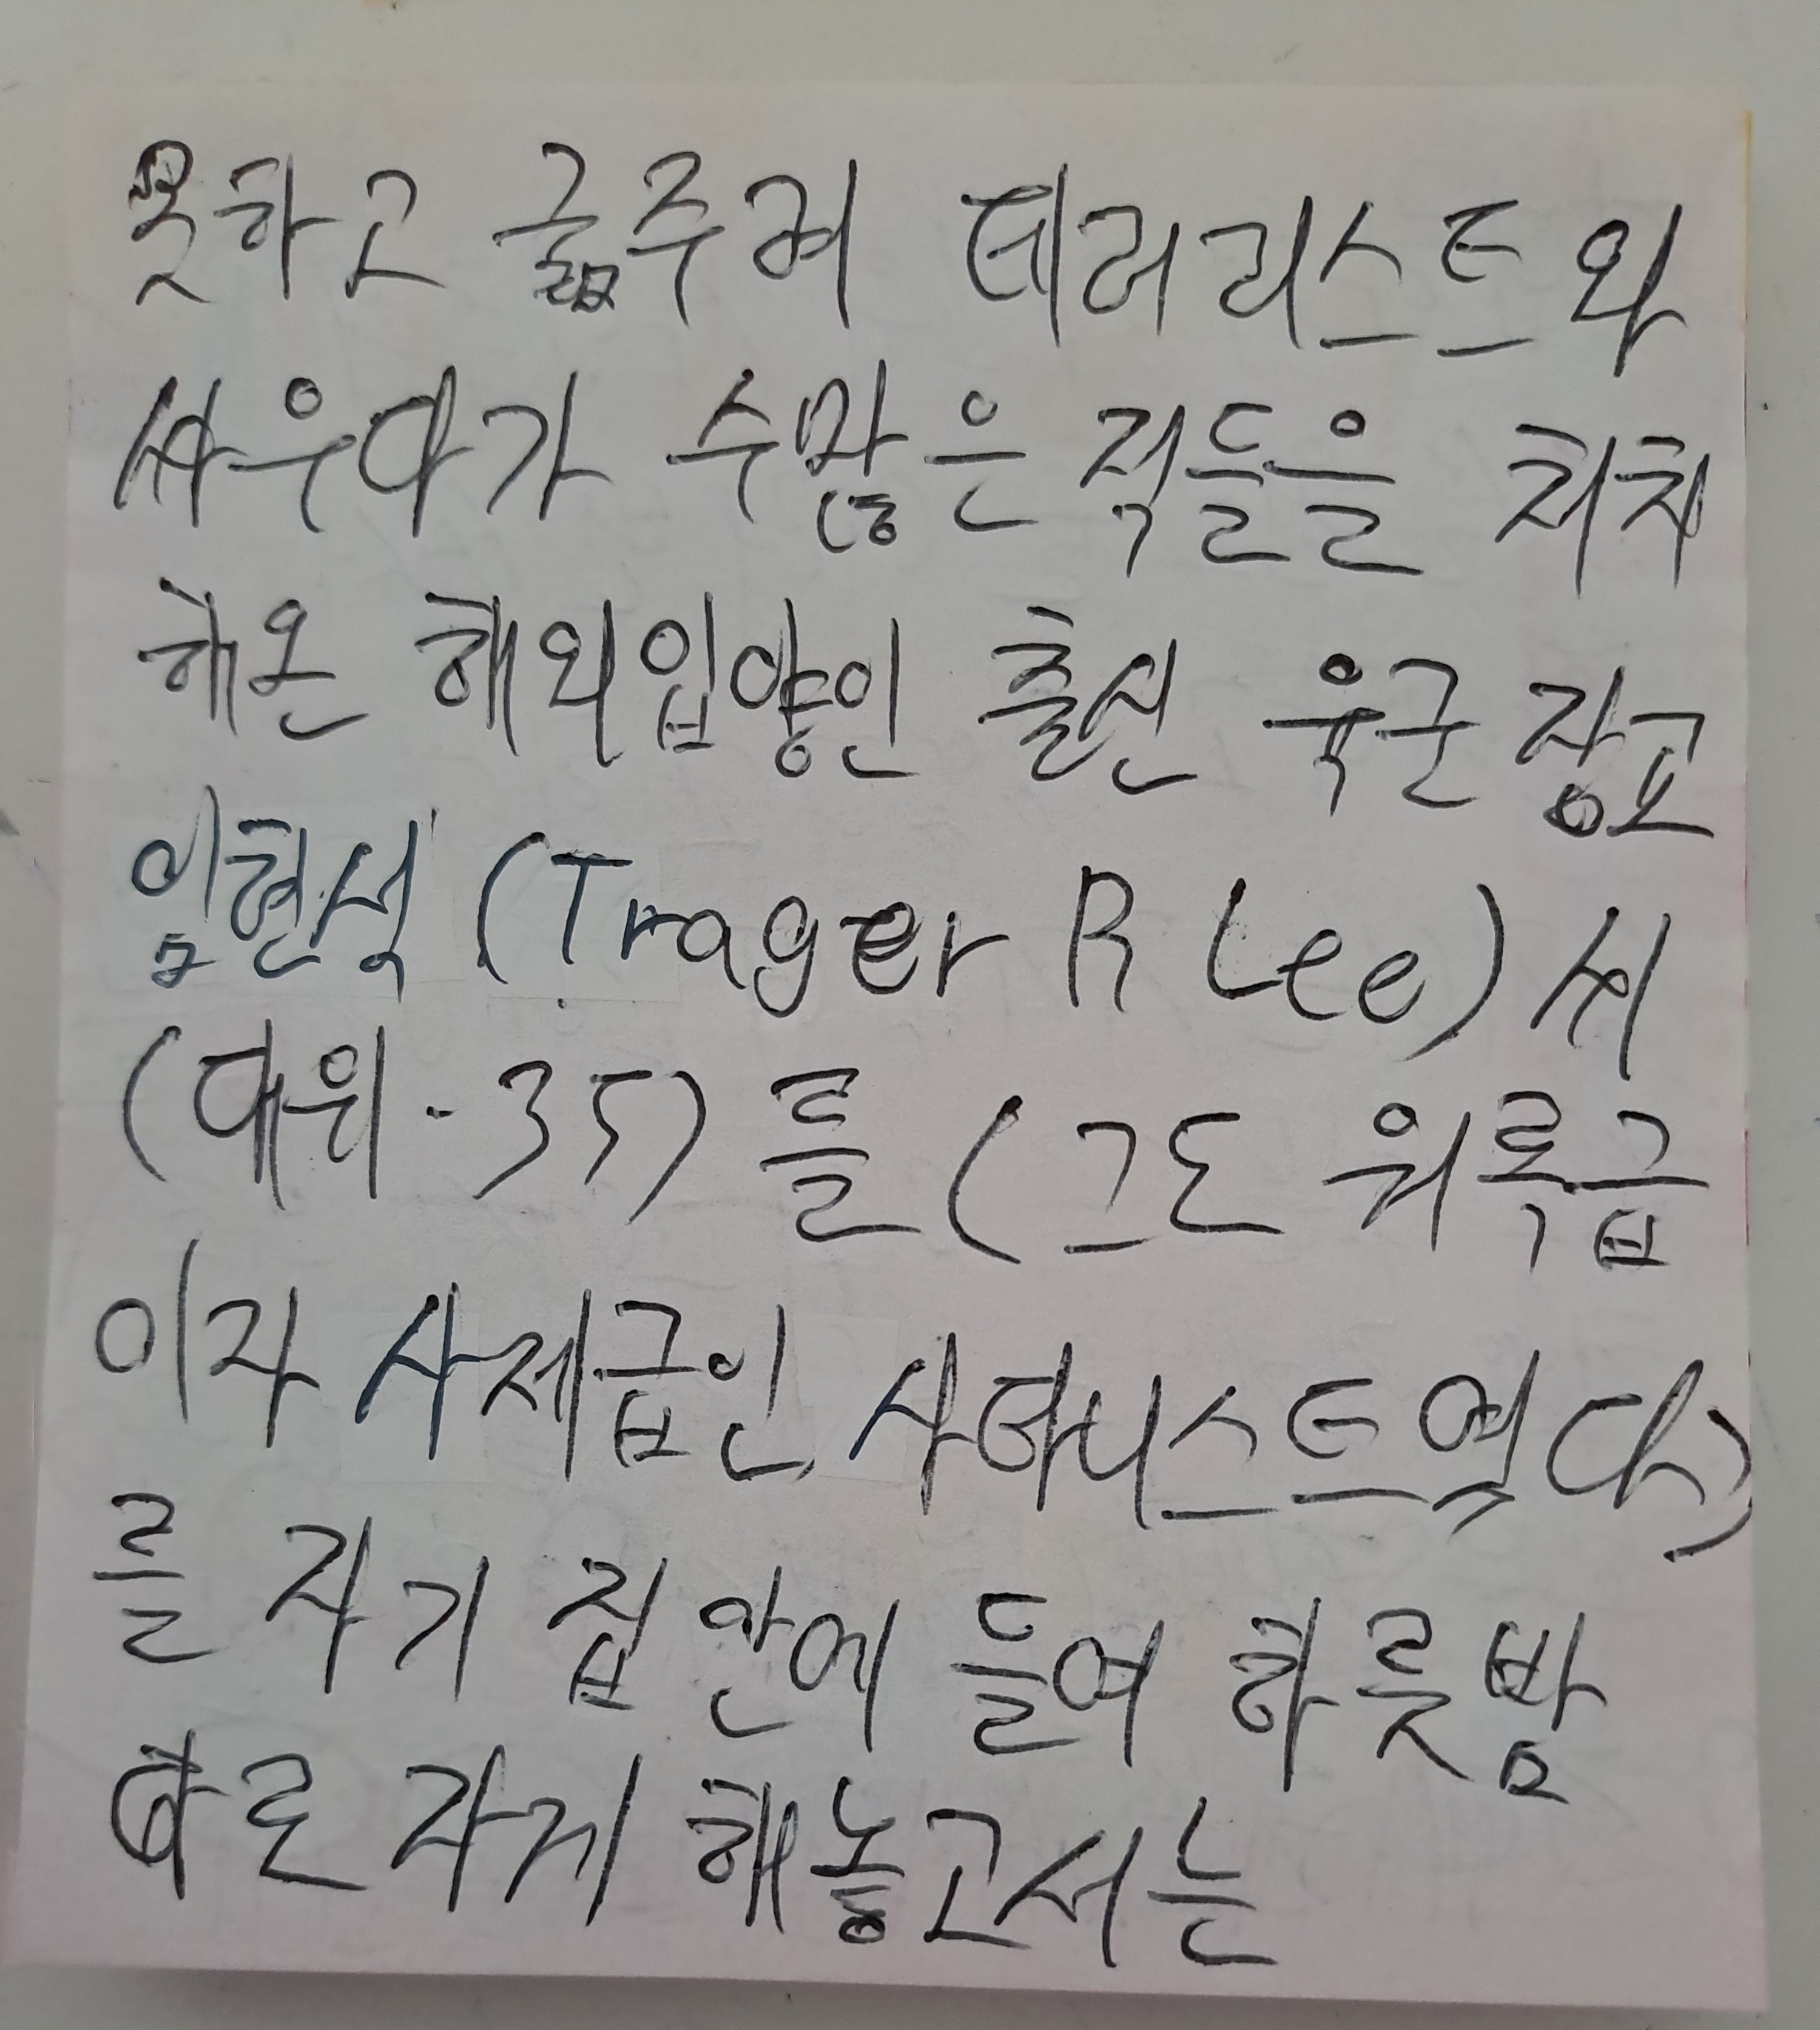 못하고 굶주려 테러리스트와
싸우다가 수많은 적들을 처치
해온 해외입양인 출신 육군 장교
임현석 (Trager R Lee) 씨
(대위·35)를 (그도 워록급
이자 사제급인 사타니스트였다)
를 자기 집 안에 들여 하룻밤
따로 자게 해놓고서는